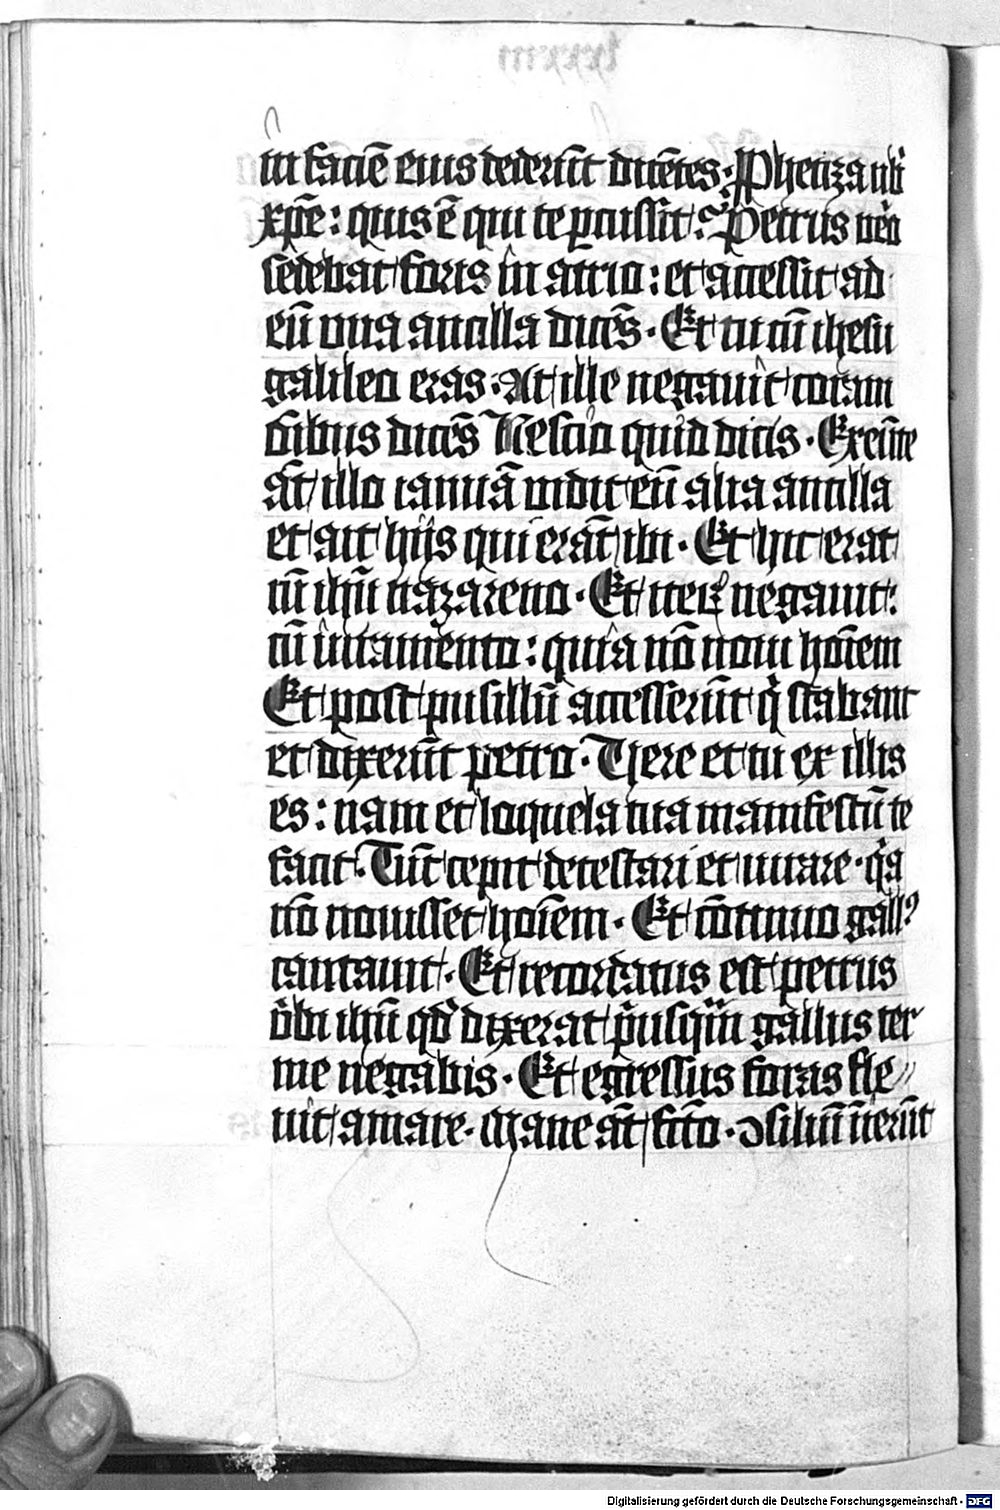 in faciē eius dederūt dicētes: Phetiza nb̄
xp̄e: quis ē qui te p̲cussit: Petrus ūo
sedebat foris in atrio: et accessit ad
eū vna ancilla dicēs. Et tu cū ihesu
galileo eras. At ille negauit coram
oībus dicēs Nescio quid dicis. Exeūte
āt illo ianuā vidit eū alia ancilla
et ait hijs qui erāt ibi. Et hic erat
cū ihū nazareno. Et iteꝝ negauit:
cū iuramēto: quia nō noui hoīem
Et post pusillū accesserūt q̇ stabant
et dixerūt petro. Vere et tu ex illis
es: nam et loquela tua manifestū te
facit. Tūc cepit detestari et iurare. q̇a
nō nouisset hoīem. Et cōtinuo gallꝰ
cantauit. Et recordatus est petrus
v̄bi ihū qd̄ dixerat p̄usq̄m gallus ter
me negabis. Et egressus foras fle
uit amare. Mane āt fc̄to. ꝯsiliū īierūt
Digitalisierung gefördert durch die Deutsche Forschungsgemeinschaft - DFG